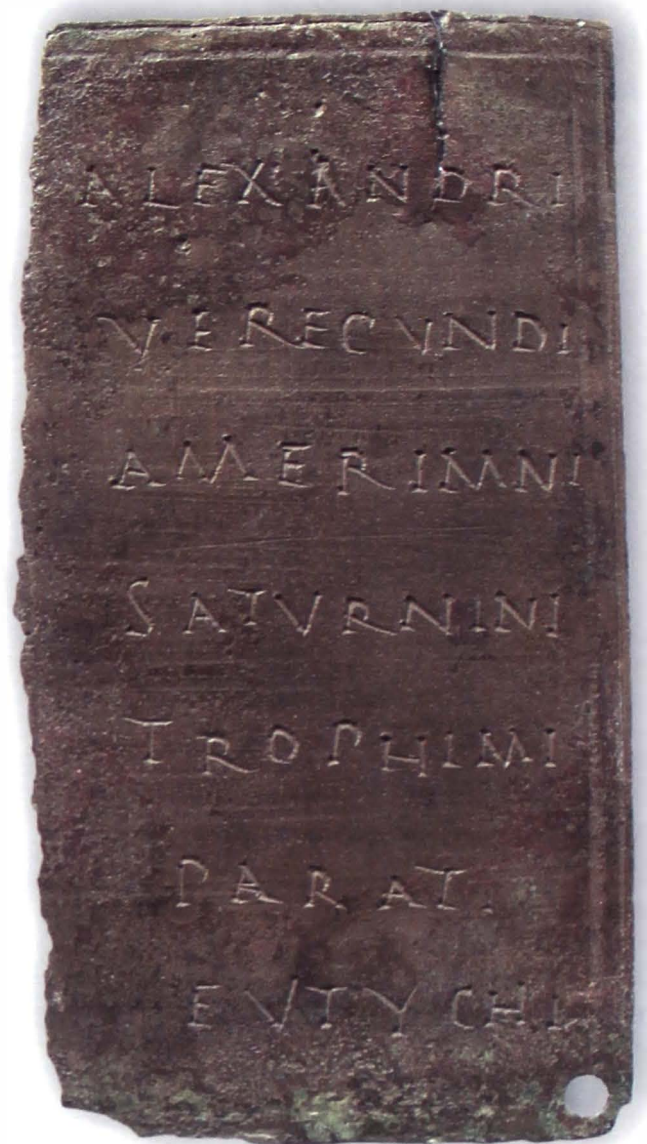 ALEXANDRI
VERECVNDI
AMERIMNI
SATVRNINI
TROPHIMI
PARAT.
EVTYCHI